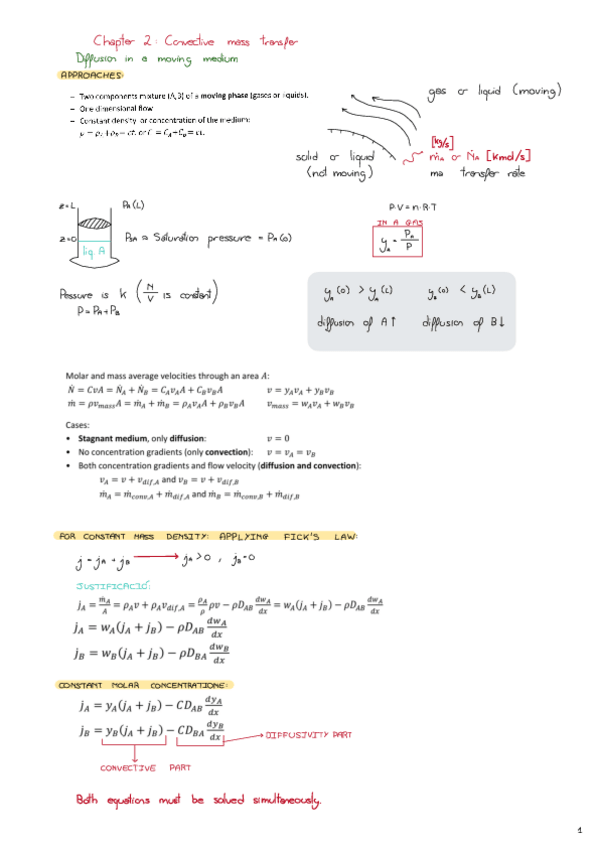 Chapter 2: Convective mass transfer
Diffusion in a moving medium
APPROACHES:
– Two components mixture (A,B) of a moving phase (gases or liquids).
– One dimensional flow
– Constant density or concentration of the medium:
gas or liquid (moving)
solid or liquid
(not moving)
[kg/s]
ṁA or ṄA [kmol/s]
ma transfer rate
z=L PA(L)
z=0 PSA ≈ Saturation pressure = PA(0)
liq. A
P·V=n·R·T
IN A GAS
yA = PA/P
Pressure is k (N/V is constant)
P=PA+PB
yA(0) > yA(L) yB(0) < yB(L)
diffusion of A↑ diffusion of B↓
Molar and mass average velocities through an area A:
Ṅ = CvA = ṄA + ṄB = CAvAA + CBvBA v = yAvA + yBvB
ṁ = ρvmassA = ṁA + ṁB = ρAvAA + ρBvBA vmass = wAvA + wBvB
Cases:
• Stagnant medium, only diffusion: v = 0
• No concentration gradients (only convection): v = vA = vB
• Both concentration gradients and flow velocity (diffusion and convection):
vA = v + vdif,A and vB = v + vdif,B
ṁA = ṁconv,A + ṁdif,A and ṁB = ṁconv,B + ṁdif,B
FOR CONSTANT MASS DENSITY: APPLYING FICK'S LAW:
j = jA + jB → jA>0 , jB=0
JUSTIFICACIÓ:
jA = ṁA/A = ρAv + ρAvdif,A = ρA/ρ ρv − ρDAB dwA/dx = wA(jA + jB) − ρDAB dwA/dx
jA = wA(jA + jB) − ρDAB dwA/dx
jB = wB(jA + jB) − ρDBA dwB/dx
CONSTANT MOLAR CONCENTRATIONE:
jA = yA(jA + jB) − CDAB dyA/dx
jB = yB(jA + jB) − CDBA dyB/dx
DIFFUSIVITY PART
CONVECTIVE PART
Both equations must be solved simultaneously.
1